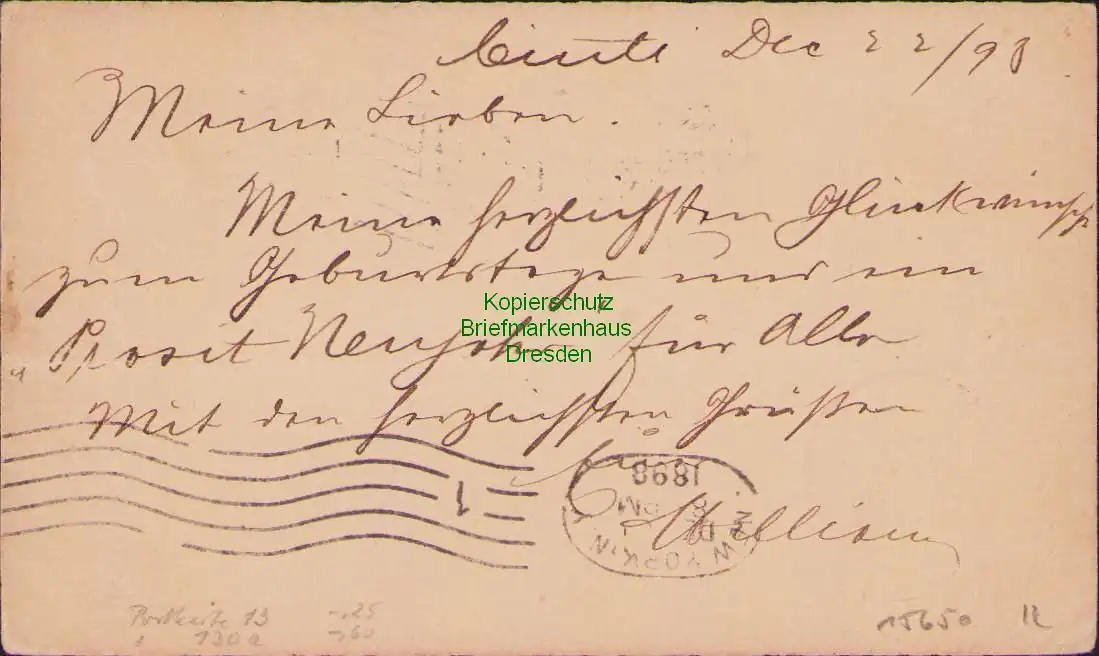 Dec 22/98
Meine Lieben.
Meine herzlichsten Glückwünsche
zum Geburtstage und ein
Kopierschutz
Briefmarkenhaus
Dresden
"Prosit Neujahr für Alle
Mit den herzlichsten Grüßen
1
1898
PM
NEW YORK, N.Y.
William
Postkarte 13 -.25
130a -.60
15650 12